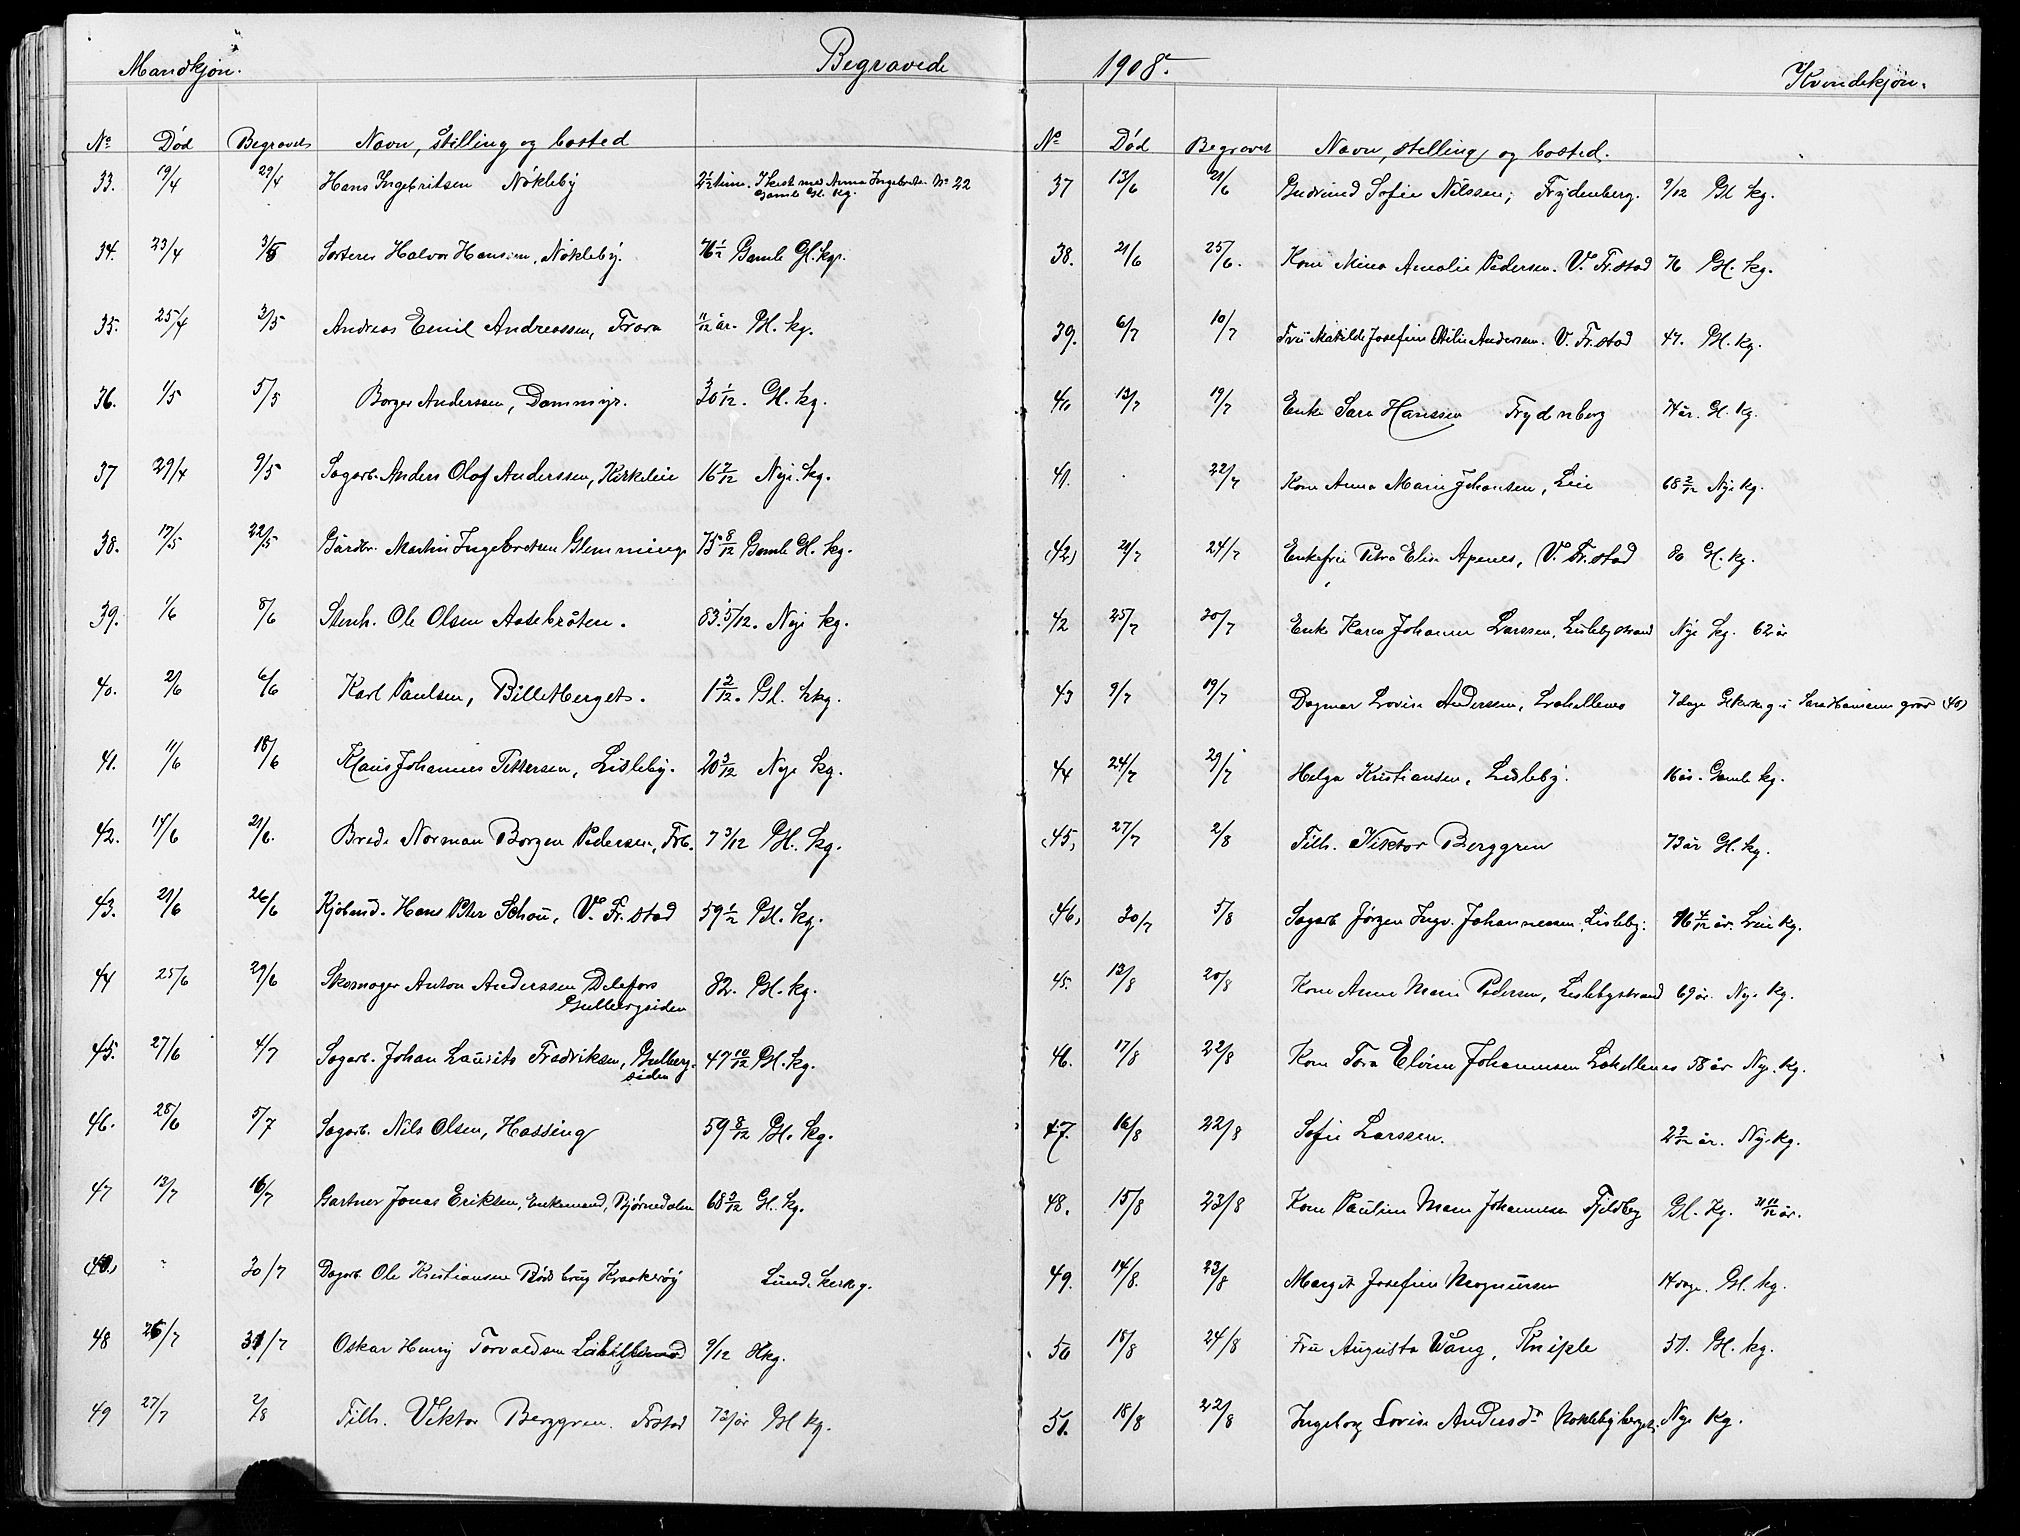 Mandkjøn.
Begravede
No Død Begravet Navn, stilling og bosted
33. 19/4 29/4 Hans Ingebritsen Nökleby 2½ time. I kist med Anna Ingebrets. No 22
Gamle Gl. kg.
34. 23/4 3/5 Sorterer Halvor Hansen, Nökleby. 76½ Gamle Gl. kg.
35. 25/4 3/5 Andreas Emil Andreassen, Trara 11/12 år. Gl. kg.
36. 1/5 5/5 Borger Anderssen, Dammyr. 30 1/12. Gl. kg.
37 29/4 9/5 Sagarb. Anders Olaf Anderssen, Kirkeleie 16 7/12 Nye. kg.
38. 17/5 22/5 Gårdbr. Martin Ingebretsen Glemminge 75 8/12 Gamle Gl. kg.
39. 1/6 8/6 Stenh. Ole Olsen Aasebråten. 83. 5/12. Nye kg.
40. 2/6 6/6 Karl Paulsen, Billetberget. 1 2/12. Gl. kg.
41. 11/6 18/6 Klaus Johannes Pettersen, Lisleby. 20 3/12 Nye kg.
42. 14/6 21/6. Brede Norman Borgen Pedersen, Frb. 7 3/12 Gl. kg.
43. 21/6 26/6 Kjöbmd. Hans Peter Schou, V. Fr.stad 59½ Gl. kg.
44 25/6 29/6 Skomager Anton Anderssen Delefors 82. Gl. kg.
Gulbergsiden
45. 27/6 4/7 Sagarb. Johan Laurits Fredriksen, Gulberg- 47 10/12 Gl. kg.
siden
46. 28/6 5/7 Sagarb. Nils Olsen, Hassing 59 8/12 Gl. kg.
47 13/7 16/7 Gartner Jonas Eriksen, Enkemand, Bjørnedalen 68 3/12 Gl. kg.
30/7 Dagarb. Ole Kristiansen Röds brug Kraakeröy Lunde kirkeg.
48 26/7 31/7 Oskar Henry Torvaldsen 9/12 Gl kg.
49 27/7 2/8 Filh. Viktor Berggren. Frstad 73 år Gl kg.
1908.
Kvindekjøn.
No Død Begravet Navn, stilling og bosted.
37 13/6 21/6 Gudrund Sofie Nilssen, Frydenberg. 9/12 Gl kg.
38. 21/6 25/6. Kone Mina Amalie Pedersen. V. Fr.stad 76 Gl. kg.
39. 6/7 10/7 Fru Matilde Josefine Andersen. V. Fr.stad 47. Gl. kg.
40 13/7 19/7 Enke Sara Hanssen Frydnberg 74 år. Gl. kg.
41. 22/7 Kone Anna Marie Johansen, Leie 68 2/12 Nye kg.
(42) 21/7 24/7 Enkefru Petra Elise Apenes, V. Fr.stad 80 Gl. kg.
42 25/7 30/7 Enke Karen Johanne Larssen, Lislebystrand Nye kg. 62 år
43 9/7 19/7 Dagmar Lovise Anderssen, Lahellemo 7 dage Gl kirkeg i Sara Hansens grav (40)
44 24/7 29/7 Helga Kristiansen, Lisleby. 16 år. Gamle kg.
(45) 27/7 2/8 Filh. Viktor Berggren 73 år Gl. kg.
(46) 30/7 5/8 Sagarb. Jørgen Ingv. Johannessen. Lisleby. 76 4/12 år. Leie kg.
45. 13/8 20/8 Kone Anne Marie Pedersen, Lislebystrand 69 år. Nye kg.
46. 17/8 22/8 Kone Tora Elvine Johannesen Lahellemo 58 år Nye. kg.
47. 16/8 22/8 Sofie Larssen. 2 2/12 år. Nye kg.
48. 15/8 23/8 Kone Pauline Marie Johannesen Fjeldby Gl. kg. 31 10/12 år.
49. 14/8. 23/8 Margit Josefine Magnussen 14 dage. Gl. kg.
50 18/8 24/8 Fru Augusta Wang, Kniple 51. Gl. kg.
51. 18/8 22/8 Ingeborg Lovise Andersdr Nøkleby berget. Nye kg.